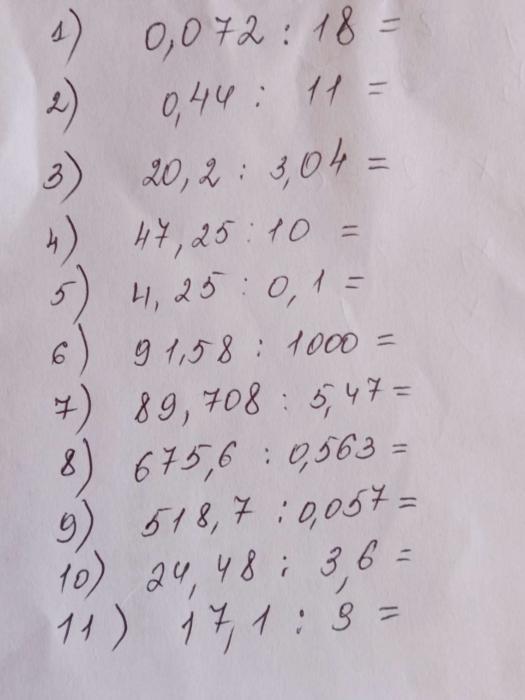 1) 0,072 : 18 =
2) 0,44 : 11 =
3) 20,2 : 3,04 =
4) 47,25 : 10 =
5) 4,25 : 0,1 =
6) 91,58 : 1000 =
7) 89,708 : 5,47 =
8) 675,6 : 0,563 =
9) 518,7 : 0,057 =
10) 24,48 : 3,6 =
11) 17,1 : 3 =